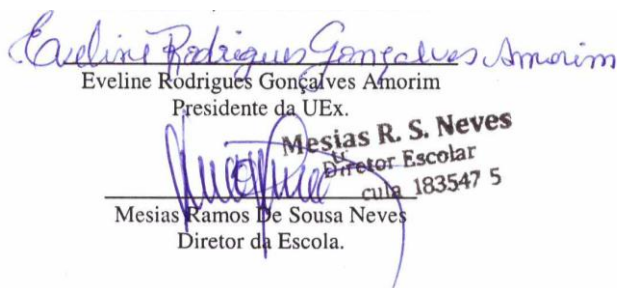 Eveline Rodrigues Gonçalves Amorim
Eveline Rodrigues Gonçalves Amorim
Presidente da UEx.
Mesias R. S. Neves
Diretor Escolar
cula 183547 5
Mesias Ramos De Sousa Neves
Diretor da Escola.